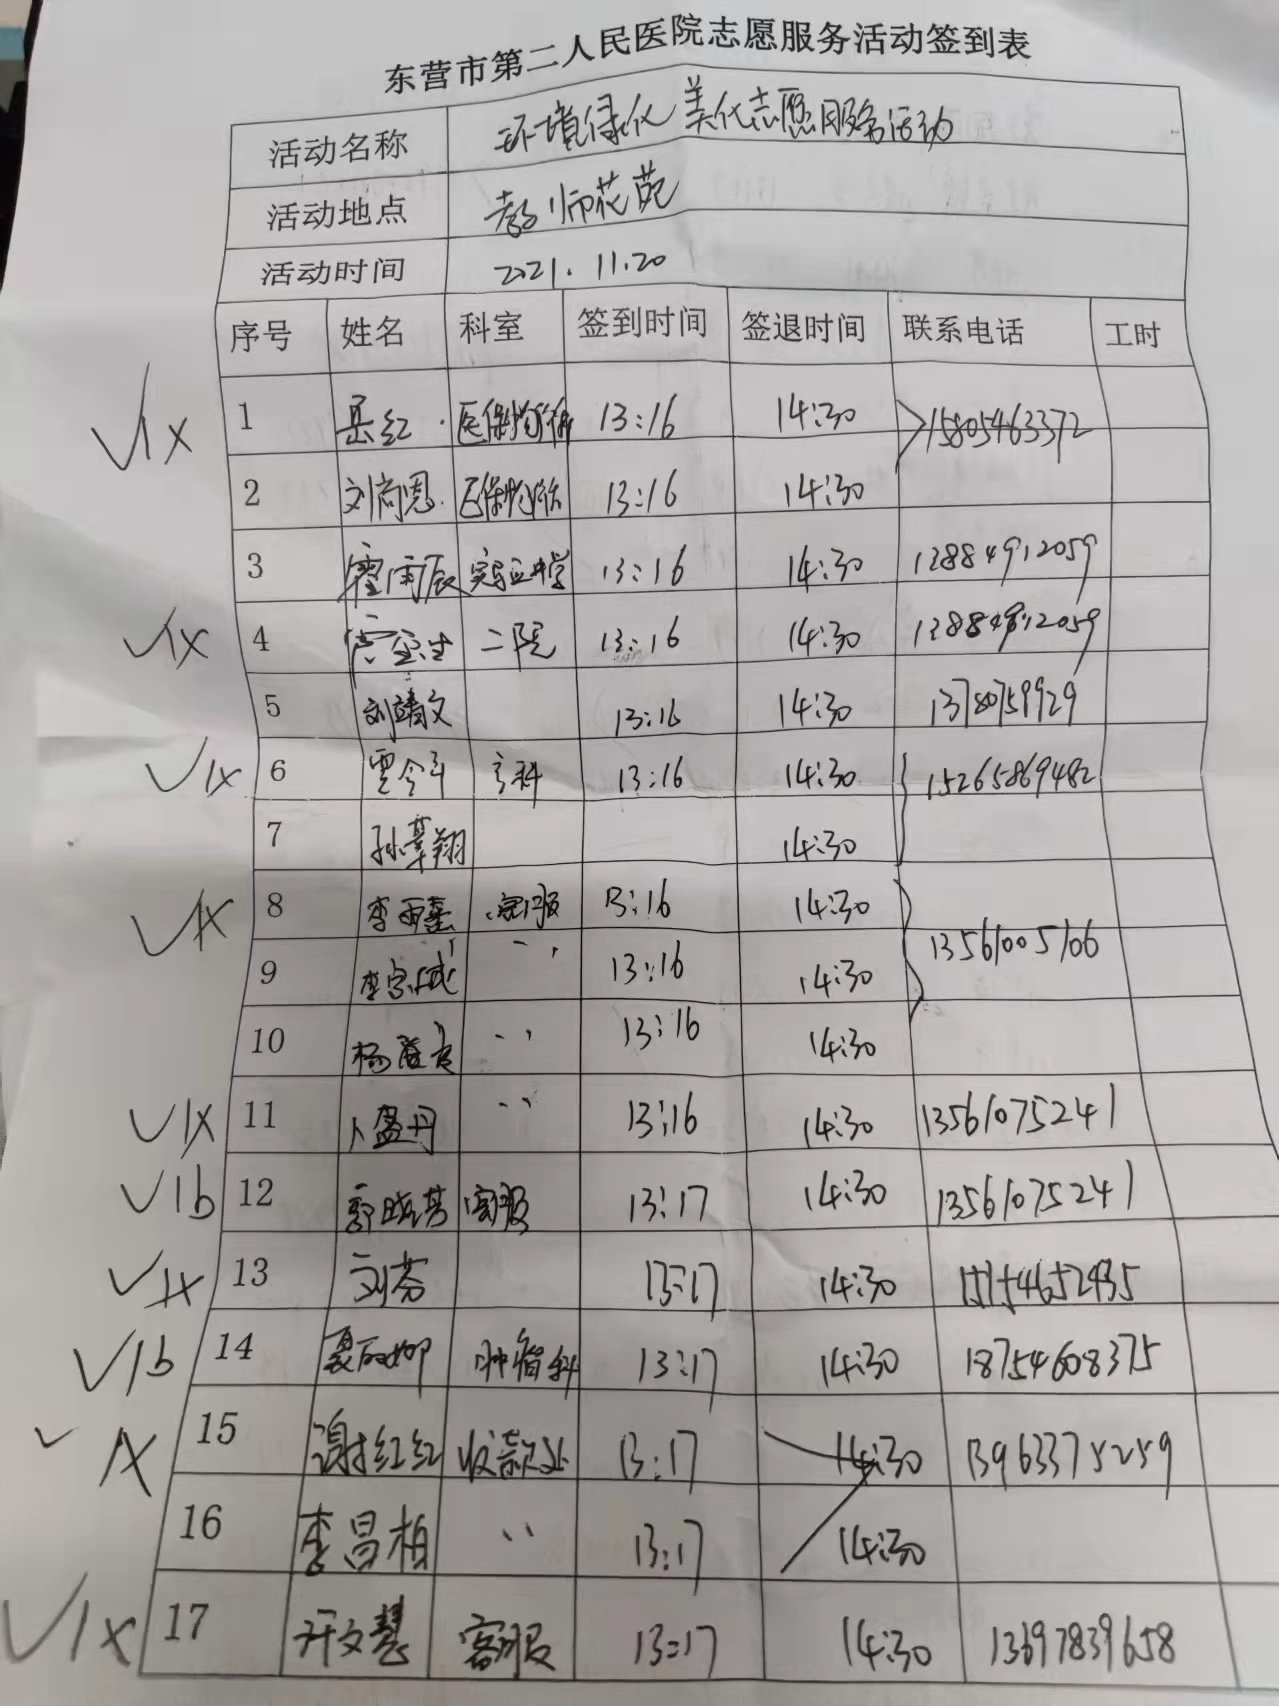 东营市第二人民医院志愿服务活动签到表
活动名称 环境绿化美化志愿服务活动
活动地点 教师花苑
活动时间 2021.11.20
序号 姓名 科室 签到时间 签退时间 联系电话 工时
√1x 1 岳红 医保物价科 13:16 14:30 15805463372
2 刘尚恩 医保物价 13:16 14:30
3 霍雨辰 实验中学 13:16 14:30 13884912059
√1x 4 二院 13:16 14:30 13884912059
5 刘靖文 13:16 14:30 13780759929
√1x 6 13:16 14:30 15265869482
7 孙葦翔 14:30
√1x 8 李雨蓁 客服 13:16 14:30 13561005106
9 李宗 〃 13:16 14:30
10 杨 〃 13:16 14:30
√1x 11 卜盈丹 〃 13:16 14:30 13561075241
√1b 12 郭晓芳 客服 13:17 14:30 13561075241
√1x 13 刘芬 13:17 14:30 15154652935
√1b 14 聂丽娜 肿瘤科 13:17 14:30 18754608375
√1x 15 谢红红 收款处 13:17 14:30 13963375259
16 李昌柏 〃 13:17 14:30
√1x 17 许文慧 客服 13:17 14:30 13697839658